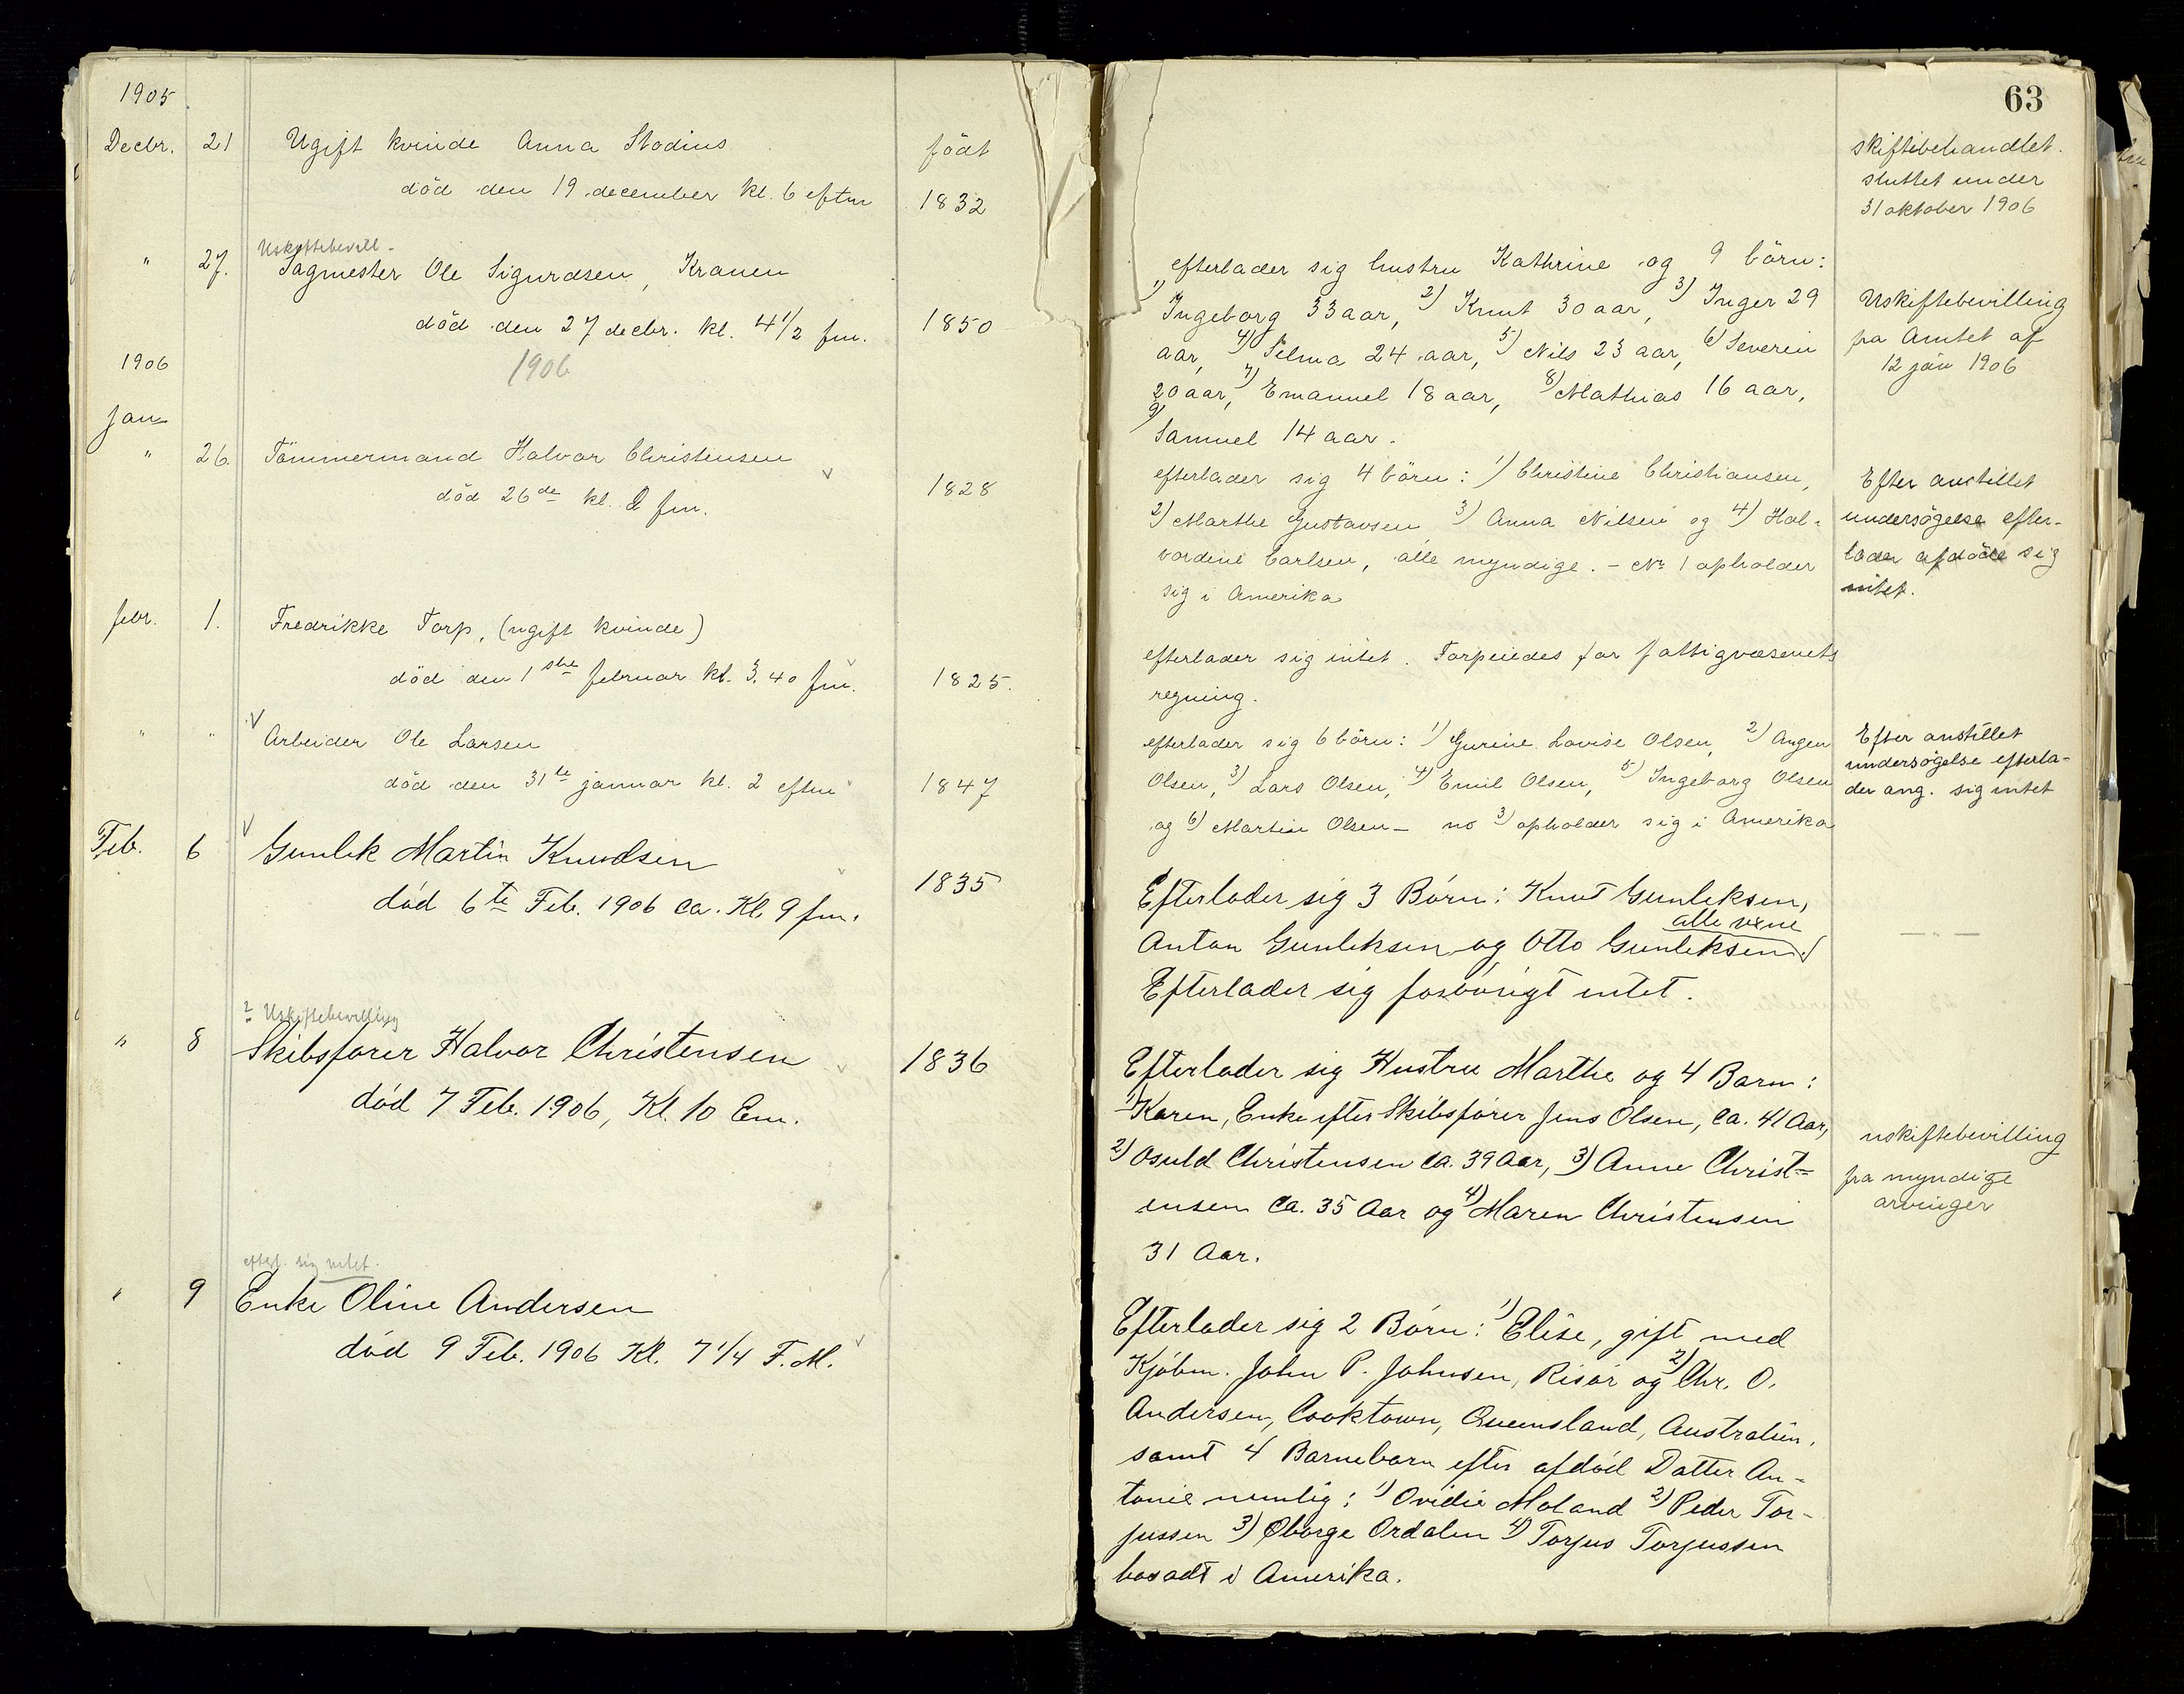 1905
Decbr. 21 Ugift kvinde Anna Stodius födt
död den 19 december kl. 6 eftm 1832
Uskiftebevill-
" 27. Sagmester Ole Sigurdsen, Kranen
död den 27 decbr. kl. 4 1/2 fm. 1850
1906 1906
Jan
" 26. Tömmermand Halvor Christensen
död 26de kl. 2 fm. 1828
febr. 1. Fredrikke Torp, (ugift kvinde)
död den 1ste februar kl. 3.40 fm. 1825.
" " Arbeider Ole Larsen
död den 31te januar kl. 2 eftm 1847
Feb. 6 Gunlek Martin Knudsen
död 6te Feb. 1906 ca. Kl. 9 fm. 1835
? Uskiftebevilling
" 8 Skibsfører Halvor Christensen 1836
död 7 Feb. 1906, Kl. 10 Em.
efterl. sig intet.
" 9 Enke Oline Andersen
död 9 Feb. 1906 Kl. 7 1/4 F.M.
63
skiftebehandlet.
sluttet under
31 oktober 1906
efterlader sig hustru Kathrine og 9 börn:
1) Ingeborg 33 aar, 2) Knut 30 aar, 3) Inger 29
aar, 4) Selma 24 aar, 5) Nils 23 aar, 6) Severin
20 aar, 7) Emanuel 18 aar, 8) Mathias 16 aar,
9) Samuel 14 aar.
Uskiftebevilling
fra Amtet af
12 jan 1906
efterlader sig 4 börn: 1) Christine Christiansen,
2) Marthe Gustavsen 3) Anna Nilsen og 4) Hal-
vordine Carlsen, alle myndige. - No 1 opholder
sig i Amerika
Efter anstillet
undersögelse efter-
lader afdöde sig
intet.
efterlader sig intet. Torpeiedes for fattigvæsenets
regning.
efterlader sig 6 börn: 1) Gurine Lovise Olsen, 2) Angen
Olsen, 3) Lars Olsen, 4) Emil Olsen, 5) Ingeborg Olsen
og 6) Martin Olsen - no 3) opholder sig i Amerika
Efter anstillet
undersögelse efterla-
der ang. sig intet
Efterlader sig 3 Börn: Knut Gunleksen,
alle vxne
Anton Gunleksen og Otto Gunleksen
Efterlader sig forövrigt intet.
— " —
Efterlader sig Hustru Marthe og 4 Barn:
1) Karen, Enke efter Skibsfører Jens Olsen, ca. 41 Aar,
2) Osuld Christensen ca. 39 Aar, 3) Anne Christ=
ensen ca. 35 Aar og 4) Maren Christensen
31 Aar.
uskiftebevilling
fra myndige
arvinger
Efterlader sig 2 Börn: 1) Elise, gift med
Kjöbm. John P. Johnsen, Risör og 2) Chr. O.
Andersen, Cooktown, Queensland, Australien,
samt 4 Barnebarn efter afdöd Datter An-
tonie nemlig: 1) Ovidie Moland 2) Peder Tor-
jussen 3) Oborge Ordalen 4) Torjus Torjussen
bosadt i Amerika.